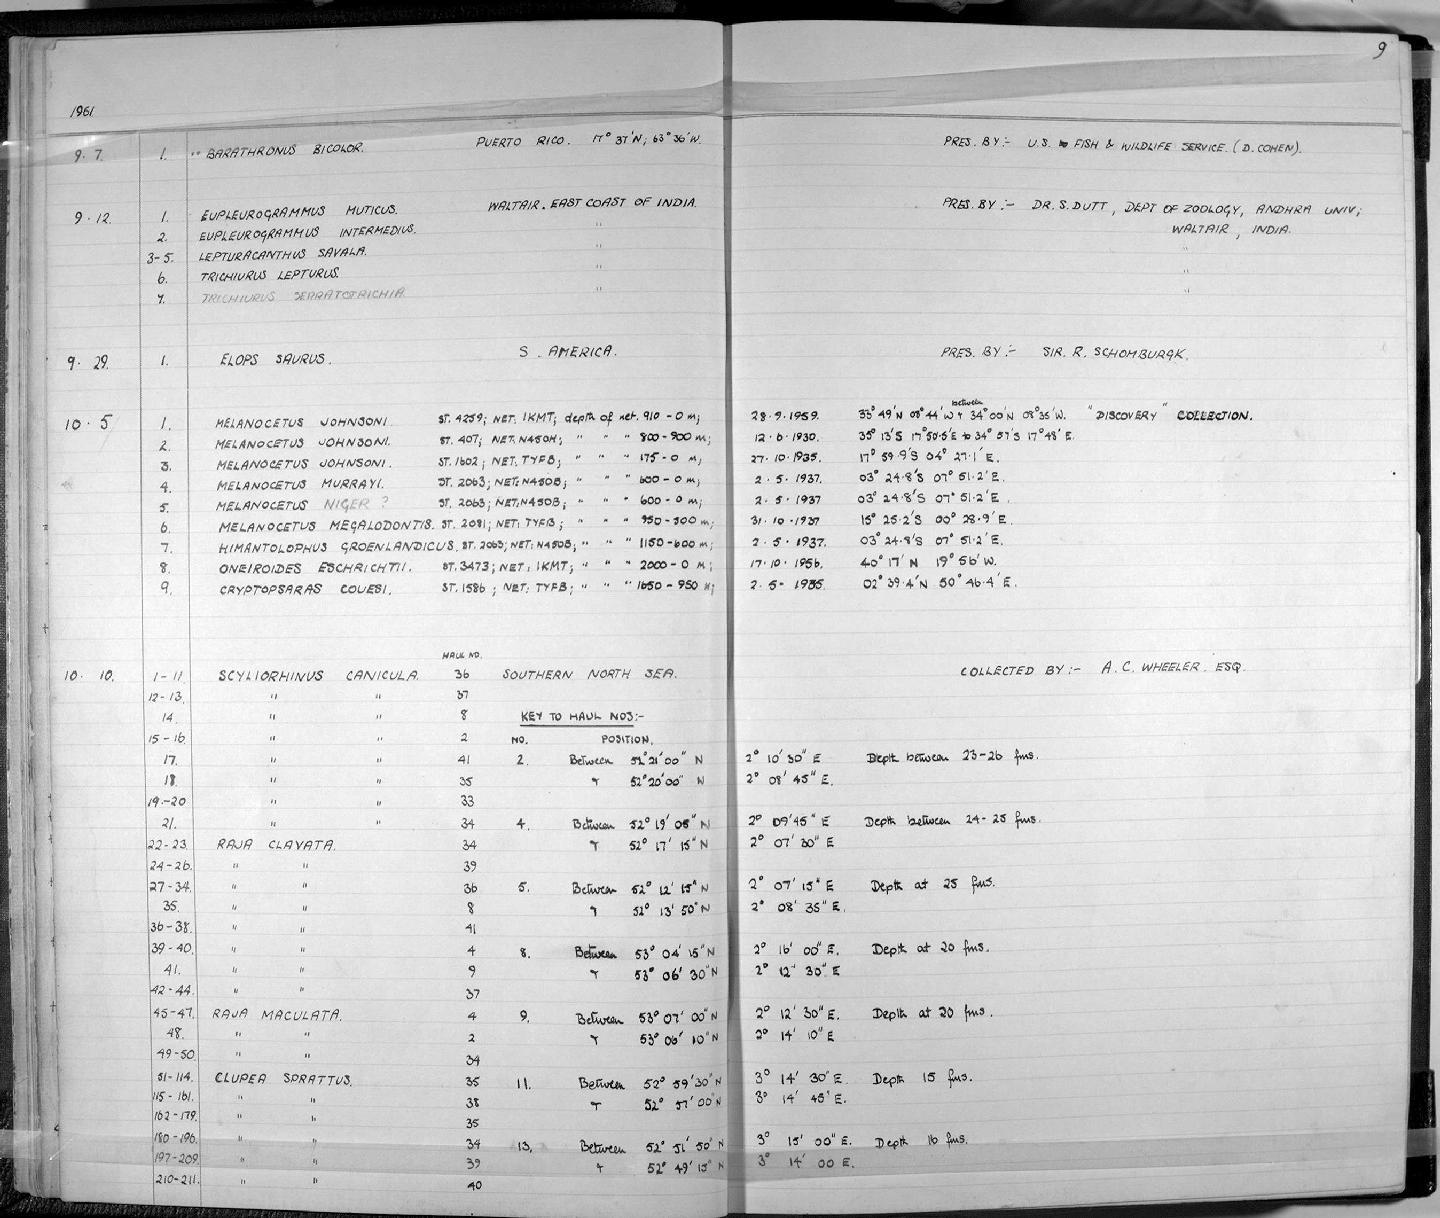 9
1961
9.7. 1. " BARATHRONUS BICOLOR. PUERTO RICO. 17° 37'N; 63° 36'W. PRES. BY:- U.S. FISH & WILDLIFE SERVICE. (D. COHEN).
9.12. 1. EUPLEUROGRAMMUS MUTICUS. WALTAIR. EAST COAST OF INDIA. PRES. BY:- DR. S. DUTT, DEPT OF ZOOLOGY, ANDHRA UNIV;
2. EUPLEUROGRAMMUS INTERMEDIUS. " WALTAIR, INDIA.
3-5. LEPTURACANTHUS SAVALA. " "
6. TRICHIURUS LEPTURUS. " "
7. TRICHIURUS SERRATOTRICHIA " "
9.29. 1. ELOPS SAURUS. S. AMERICA. PRES. BY:- SIR. R. SCHOMBURGK.
10.5 1. MELANOCETUS JOHNSONI. ST. 4259; NET. IKMT; depth of net. 910-0 m; 28.9.1959. between 33° 49'N 08° 44'W & 34° 00'N 08° 35'W. "DISCOVERY" COLLECTION.
2. MELANOCETUS JOHNSONI. ST. 407; NET: N450H; " " " 800-900 m; 12.6.1930. 35° 13'S 17° 50.5'E to 34° 57'S 17° 48'E.
3. MELANOCETUS JOHNSONI. ST. 1602; NET: TYFB; " " " 175-0 m; 27.10.1935. 17° 59.9'S 04° 27.1'E.
4. MELANOCETUS MURRAYI. ST. 2063; NET: N450B; " " " 600-0 m; 2.5.1937. 03° 24.8'S 07° 51.2'E.
5. MELANOCETUS NIGER ? ST. 2063; NET: N450B; " " " 600-0 m; 2.5.1937 03° 24.8'S 07° 51.2'E.
6. MELANOCETUS MEGALODONTIS. ST. 2081; NET: TYFB; " " " 950-500 m; 31.10.1937 15° 25.2'S 00° 28.9'E.
7. HIMANTOLOPHUS GROENLANDICUS. ST. 2063; NET: N450B; " " " 1150-600 m; 2.5.1937. 03° 24.8'S 07° 51.2'E.
8. ONEIROIDES ESCHRICHTII. ST. 3473; NET: IKMT; " " " 2000-0 m; 17.10.1956. 40° 17'N 19° 56'W.
9. CRYPTOPSARAS COUESI. ST. 1586; NET: TYFB; " " " 1650-950 m; 2.5.1935. 02° 39.4'N 50° 46.4'E.
HAUL NO.
10.10. 1-11. SCYLIORHINUS CANICULA. 36 SOUTHERN NORTH SEA. COLLECTED BY:- A.C. WHEELER. ESQ.
12-13. " " 37
14. " " 8 KEY TO HAUL NOS:-
15-16. " " 2 NO. POSITION.
17. " " 41 2. Between 52° 21' 00" N 2° 10' 30" E Depth between 23-26 fms.
18. " " 35 & 52° 20' 00" N 2° 08' 45" E.
19.-20 " " 33
21. " " 34 4. Between 52° 19' 05" N 2° 09' 45" E Depth between 24-25 fms.
22-23. RAJA CLAVATA. 34 & 52° 17' 15" N 2° 07' 30" E
24-26. " " 39
27-34. " " 36 5. Between 52° 12' 15" N 2° 07' 15" E Depth at 25 fms.
35. " " 8 & 52° 13' 50" N 2° 08' 35" E.
36-38. " " 41
39-40. " " 4 8. Between 53° 04' 15" N 2° 16' 00" E. Depth at 20 fms.
41. " " 9 & 53° 06' 30" N 2° 12' 30" E
42-44. " " 37
45-47. RAJA MACULATA. 4 9. Between 53° 07' 00" N 2° 12' 30" E. Depth at 20 fms.
48. " " 2 & 53° 06' 10" N 2° 14' 10" E
49-50. " " 34
51-114. CLUPEA SPRATTUS. 35 11. Between 52° 59' 30" N 3° 14' 30" E. Depth 15 fms.
115-161. " " 38 & 52° 57' 00" N 3° 14' 45" E.
162-179. " " 35
180-196. " " 34 13. Between 52° 51' 50" N 3° 15' 00" E. Depth 16 fms.
197-209. " " 39 & 52° 49' 15" N 3° 14' 00 E.
210-211. " " 40